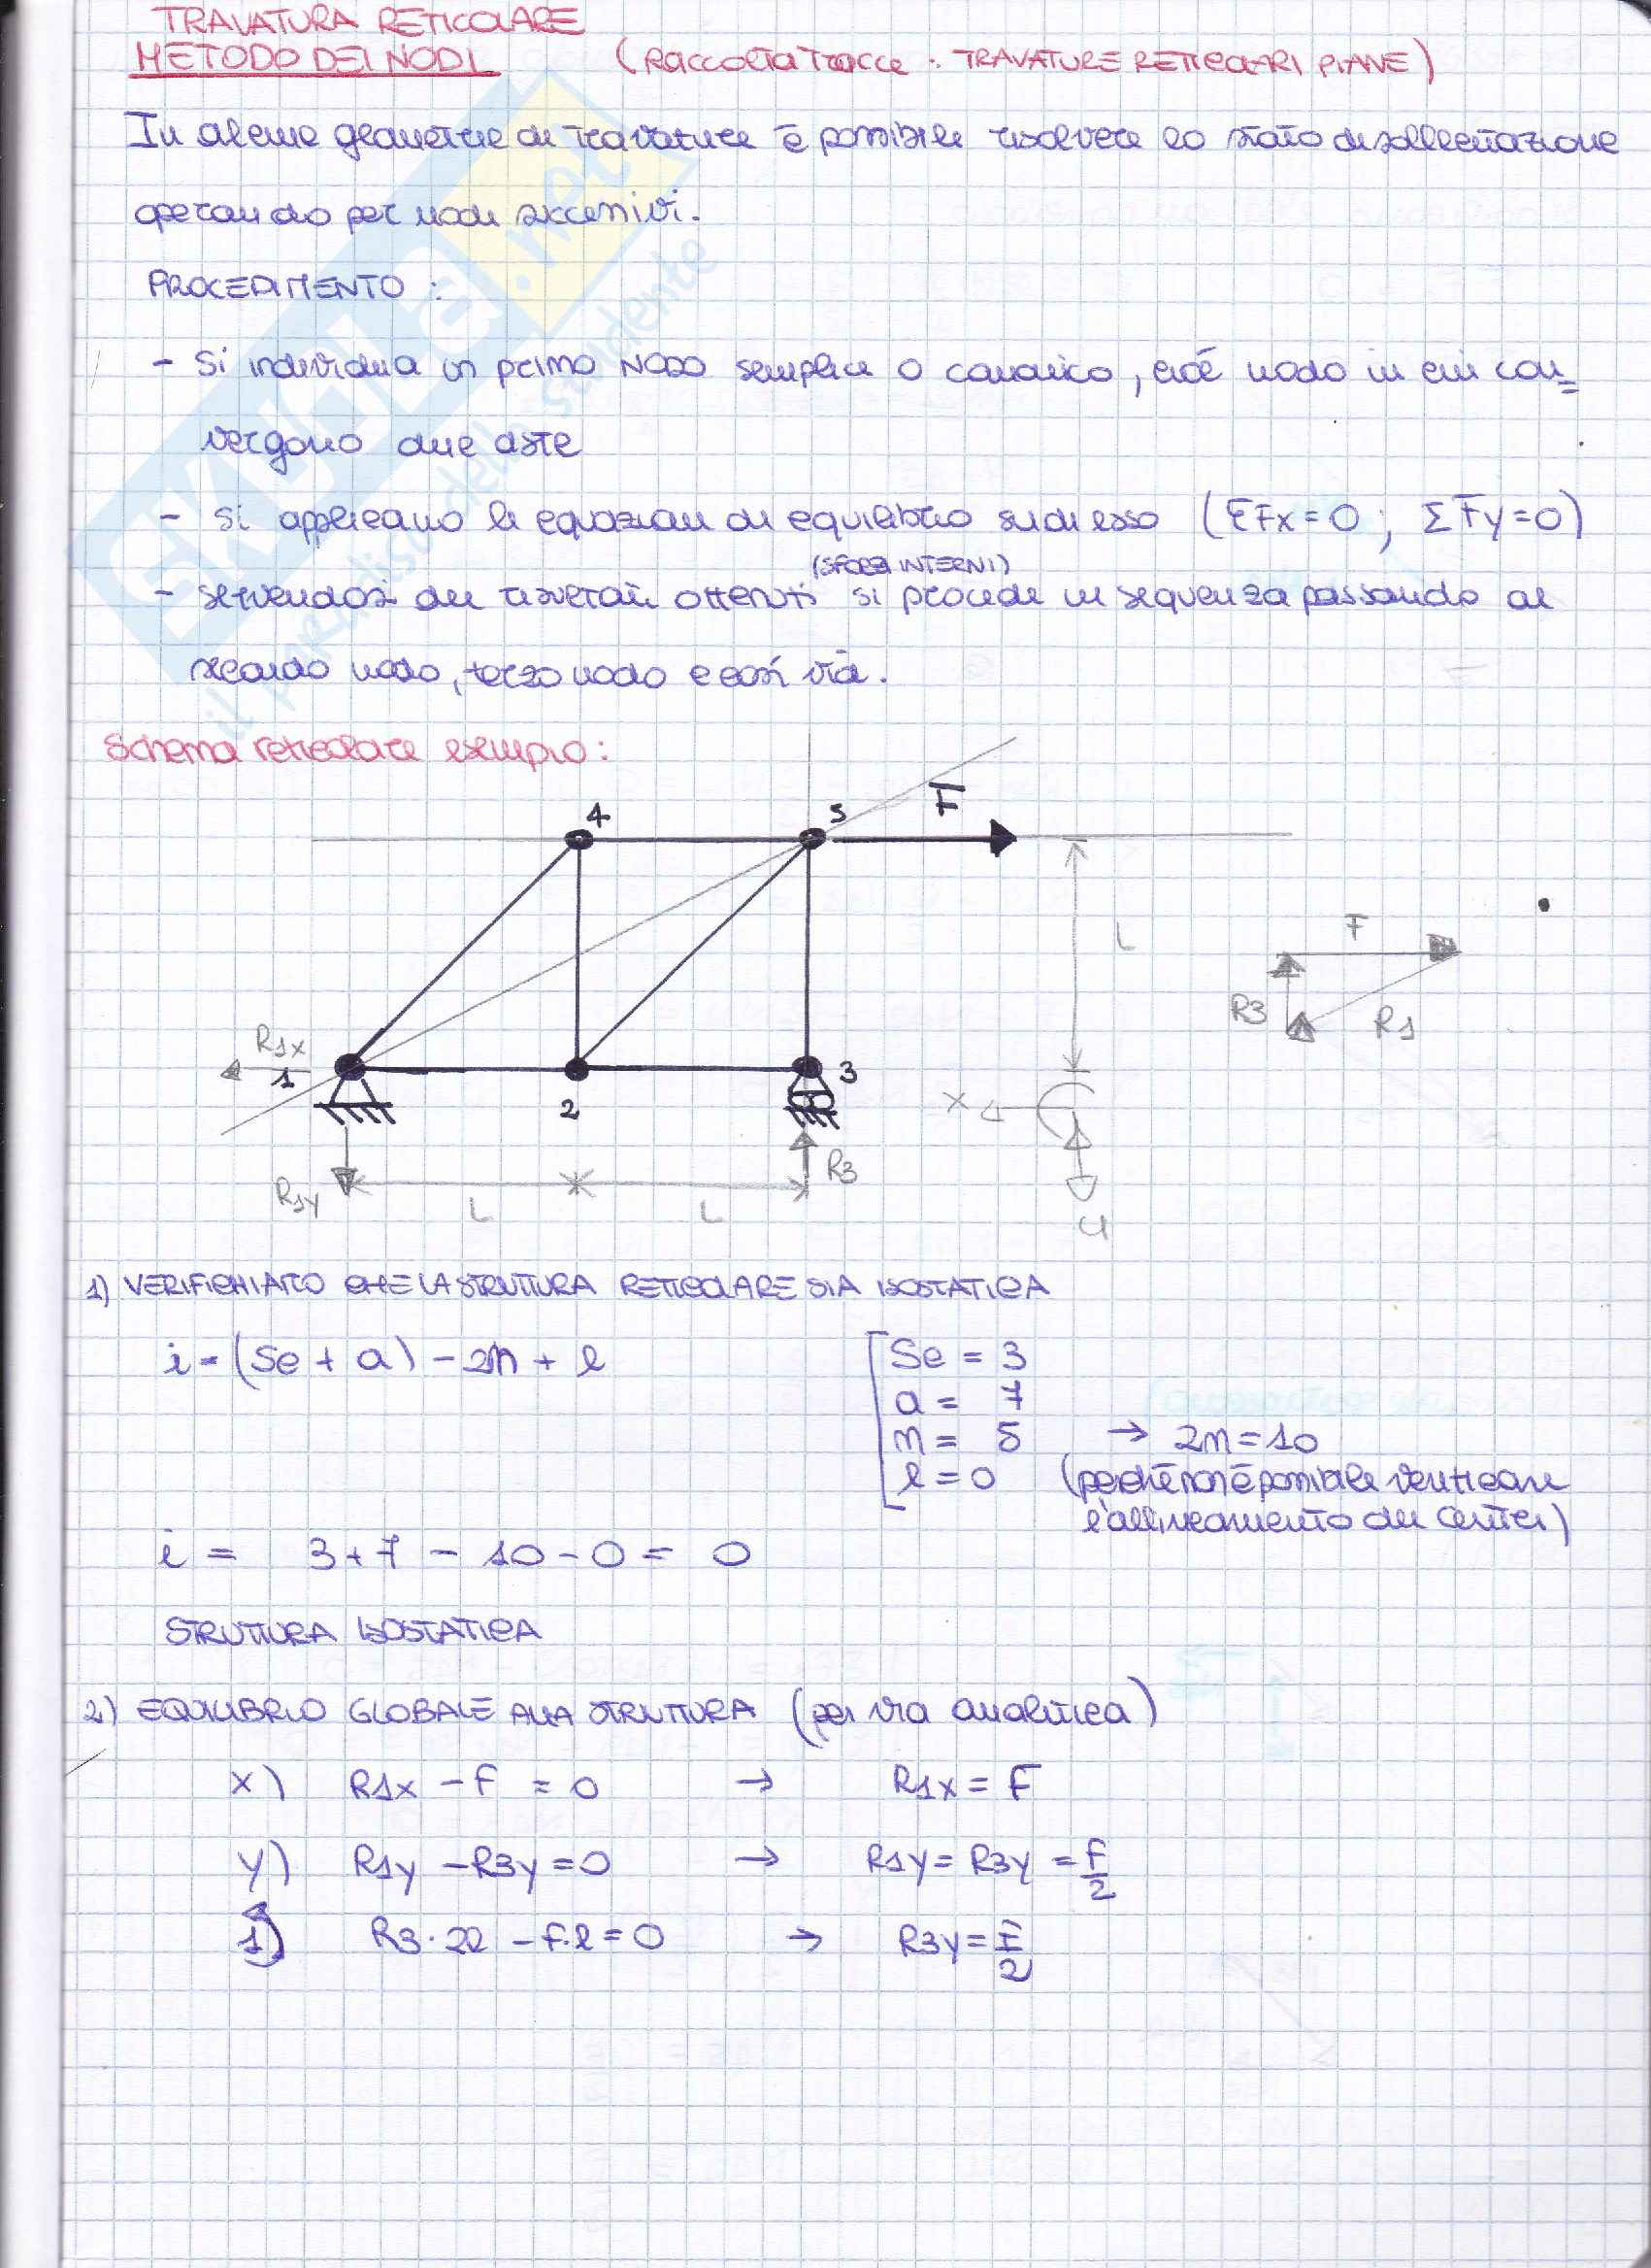 TRAVATURA RETICOLARE
METODO DEI NODI (Raccolta Tracce: TRAVATURE RETICOLARI PIANE)
In alcune geometrie di travature è possibile risolvere lo stato di sollecitazione
operando per nodi successivi.
PROCEDIMENTO:
- Si individua un primo NODO semplice o canonico, cioè nodo in cui con=
vergono due aste
- si applicano le equazioni di equilibrio su di esso (ΣFx=0; ΣFy=0)
(SFORZI INTERNI)
- servendosi dei risultati ottenuti si procede in sequenza passando al
secondo nodo, terzo nodo e così via.
Schema reticolare esempio:
4 5 F
L
F
R3 R1
R1x
1 2 3
x
R1y L L R3
y
1) VERIFICHIAMO CHE LA STRUTTURA RETICOLARE SIA ISOSTATICA
i = (Se + a) - 2n + l
Se = 3
a = 7
n = 5 → 2n = 10
l = 0 (perchè non è possibile verificare
l'allineamento dei centri)
i = 3+7 - 10 - 0 = 0
STRUTTURA ISOSTATICA
2) EQUILIBRIO GLOBALE ALLA STRUTTURA (per via analitica)
x) R1x - F = 0 → R1x = F
y) R1y - R3y = 0 → R1y = R3y = F/2
1) R3·2l - F·l = 0 → R3y = F/2
SKUOLA.net
il paradiso dello studente